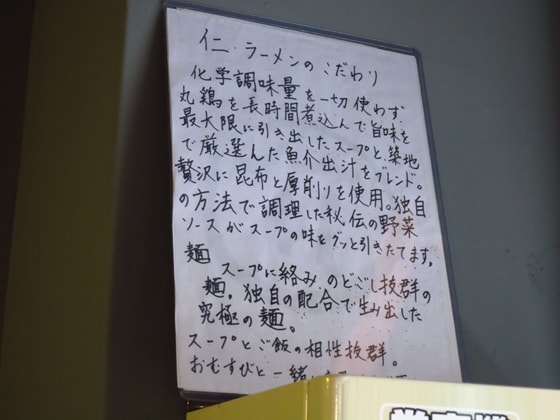 仁・ラーメンのこだわり
化学調味量を一切使わず、
丸鶏を長時間煮込んで旨味を
最大限に引き出したスープと、築地
で厳選した魚介出汁をブレンド。
贅沢に昆布と厚削りを使用。独自
の方法で調理した秘伝の野菜
ソースがスープの味をグッと引きたてます。
麺
スープに絡み、のどごし抜群の
麺。独自の配合で生み出した
究極の麺。
スープとご飯の相性抜群。
おむすびと一緒